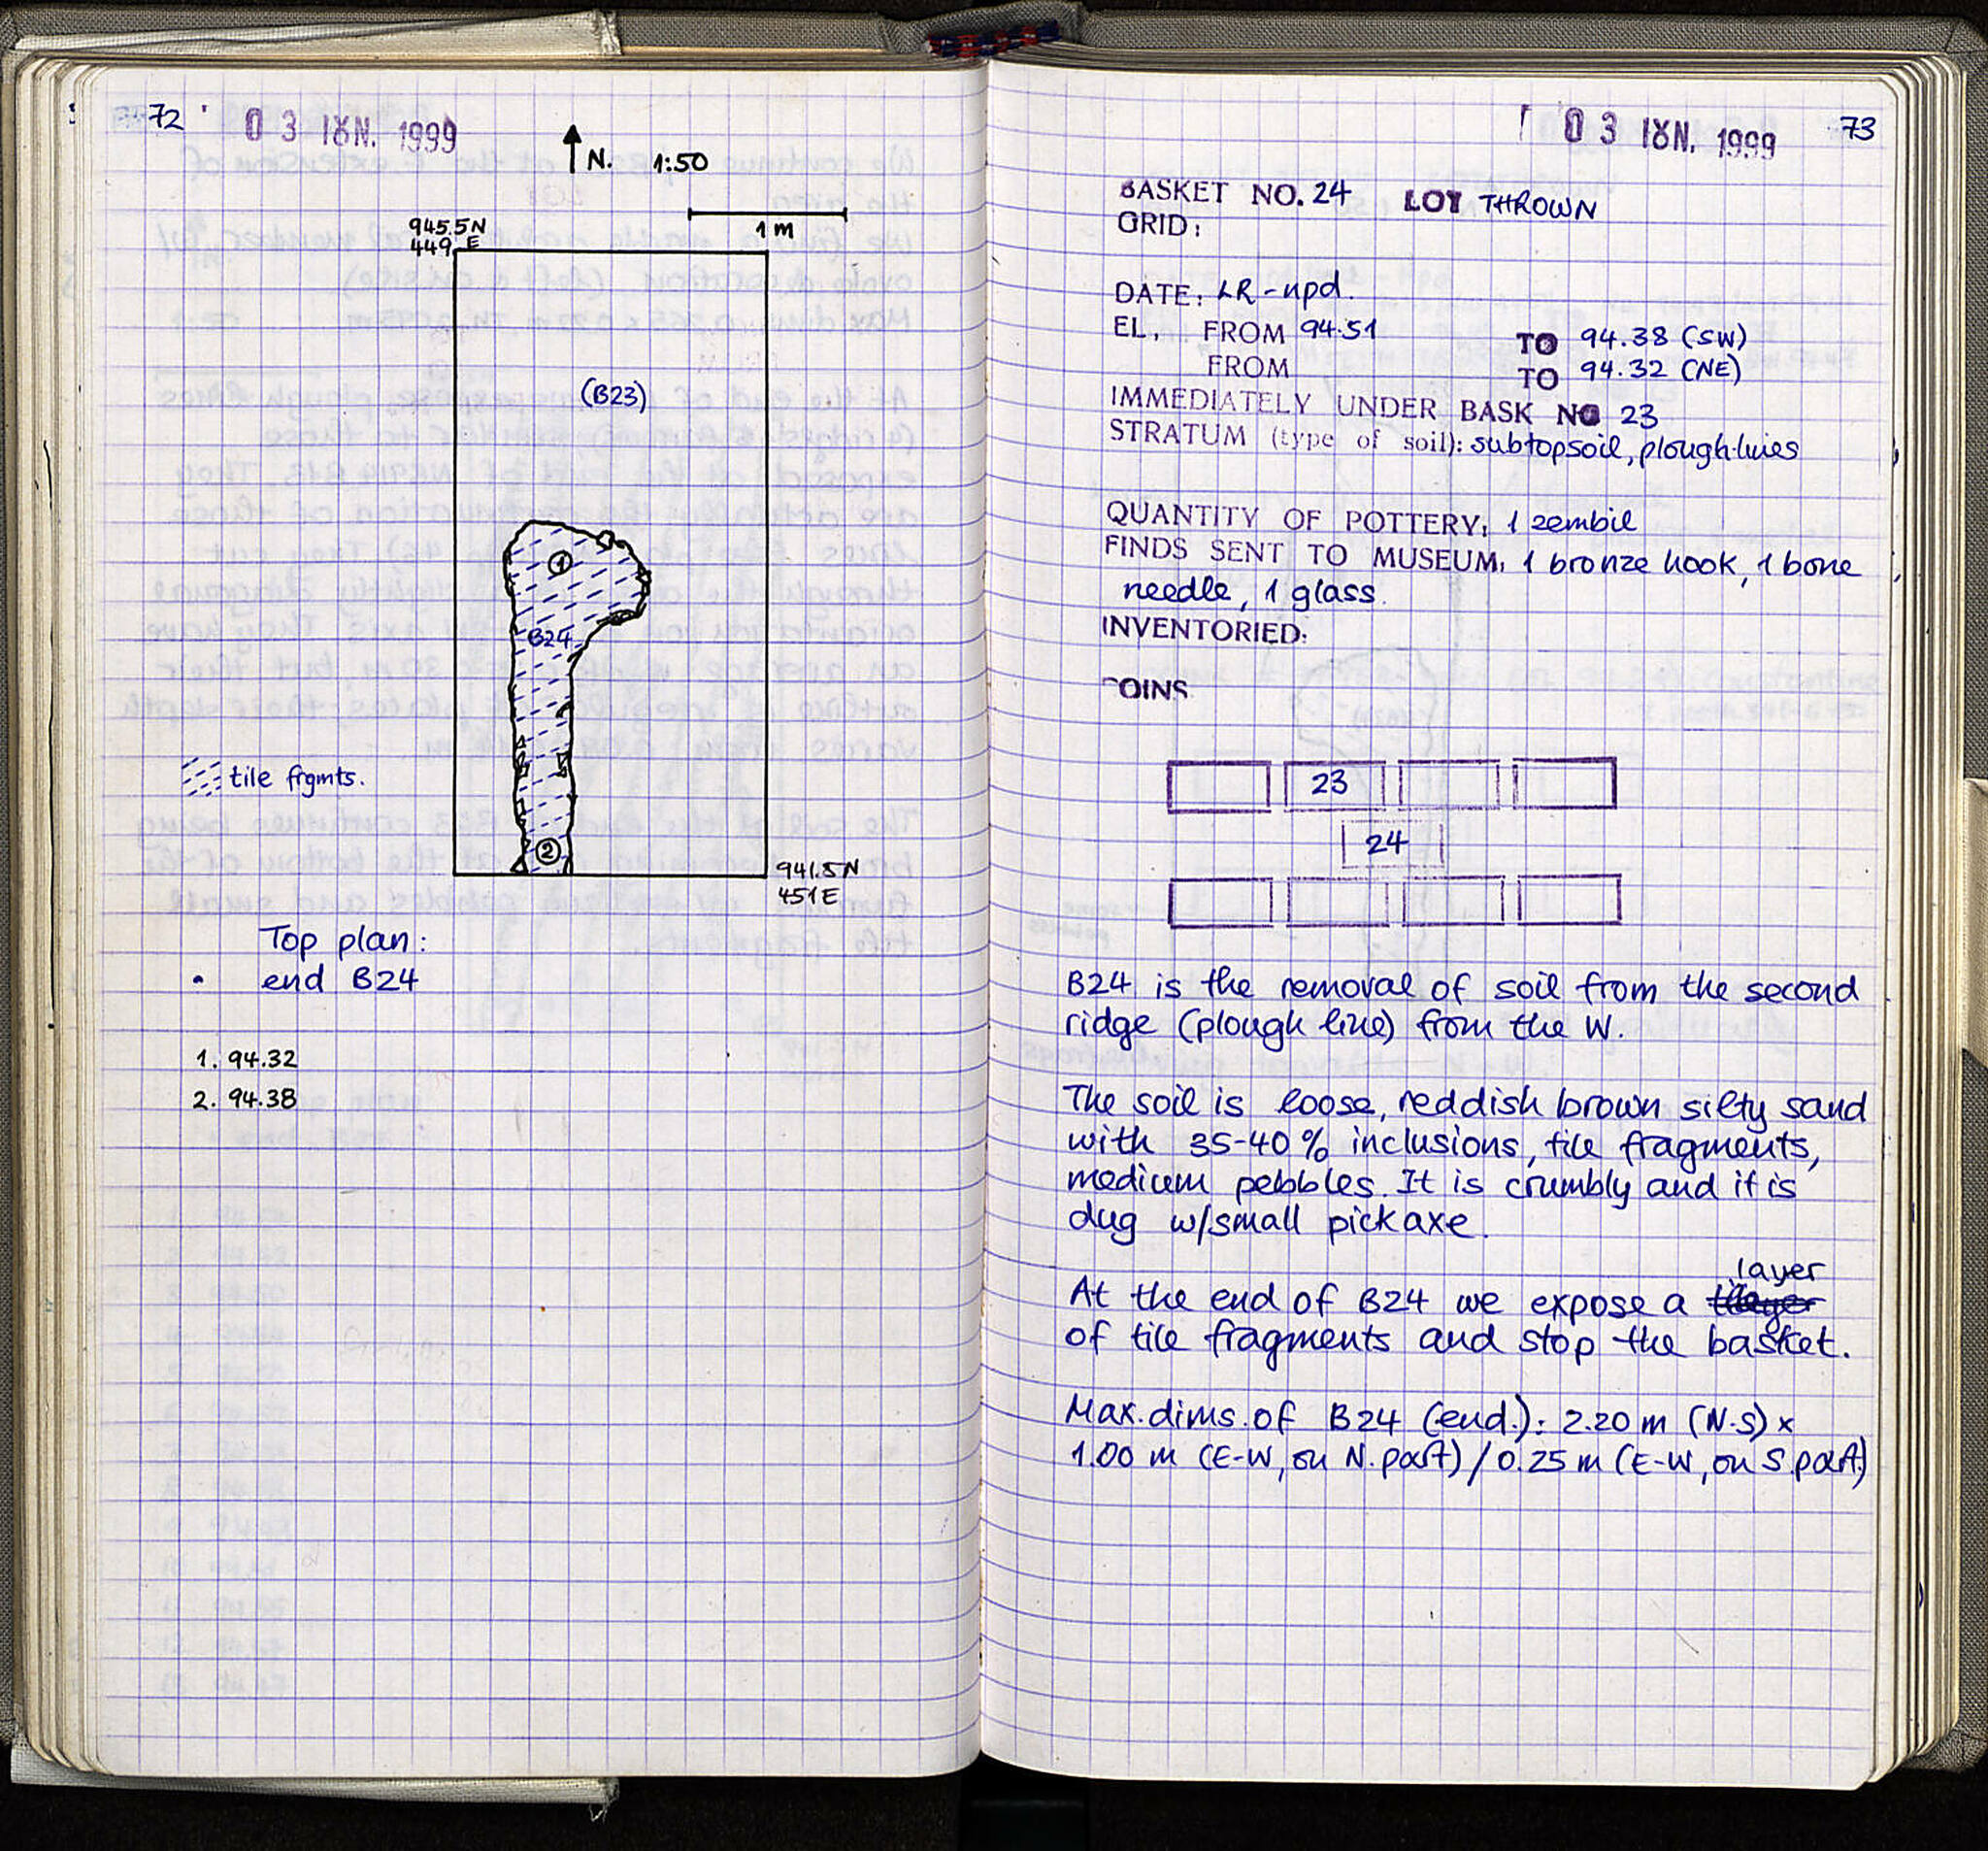 72
03 ΙΟΥΝ. 1999
N. 1:50
1 m
945.5N
449 E
(B23)
1
B24
tile frgmts.
2
941.5N
451E
Top plan:
end B24
1. 94.32
2. 94.38
03 ΙΟΥΝ. 1999
73
BASKET NO. 24 LOT THROWN
GRID:
DATE: LR-upd.
EL. FROM 94.51 TO 94.38 (SW)
FROM TO 94.32 (NE)
IMMEDIATELY UNDER BASK NO 23
STRATUM (type of soil): subtopsoil, plough-lines
QUANTITY OF POTTERY: 1 zembil
FINDS SENT TO MUSEUM: 1 bronze hook, 1 bone
needle, 1 glass.
INVENTORIED:
COINS
23
24
B24 is the removal of soil from the second
ridge (plough line) from the W.
The soil is loose, reddish brown silty sand
with 35-40% inclusions, tile fragments,
medium pebbles. It is crumbly and it is
dug w/small pickaxe.
layer
At the end of B24 we expose a
of tile fragments and stop the basket.
Max. dims. of B24 (end.): 2.20 m (N-S) x
1.00 m (E-W, on N. part) / 0.25 m (E-W, on S. part)